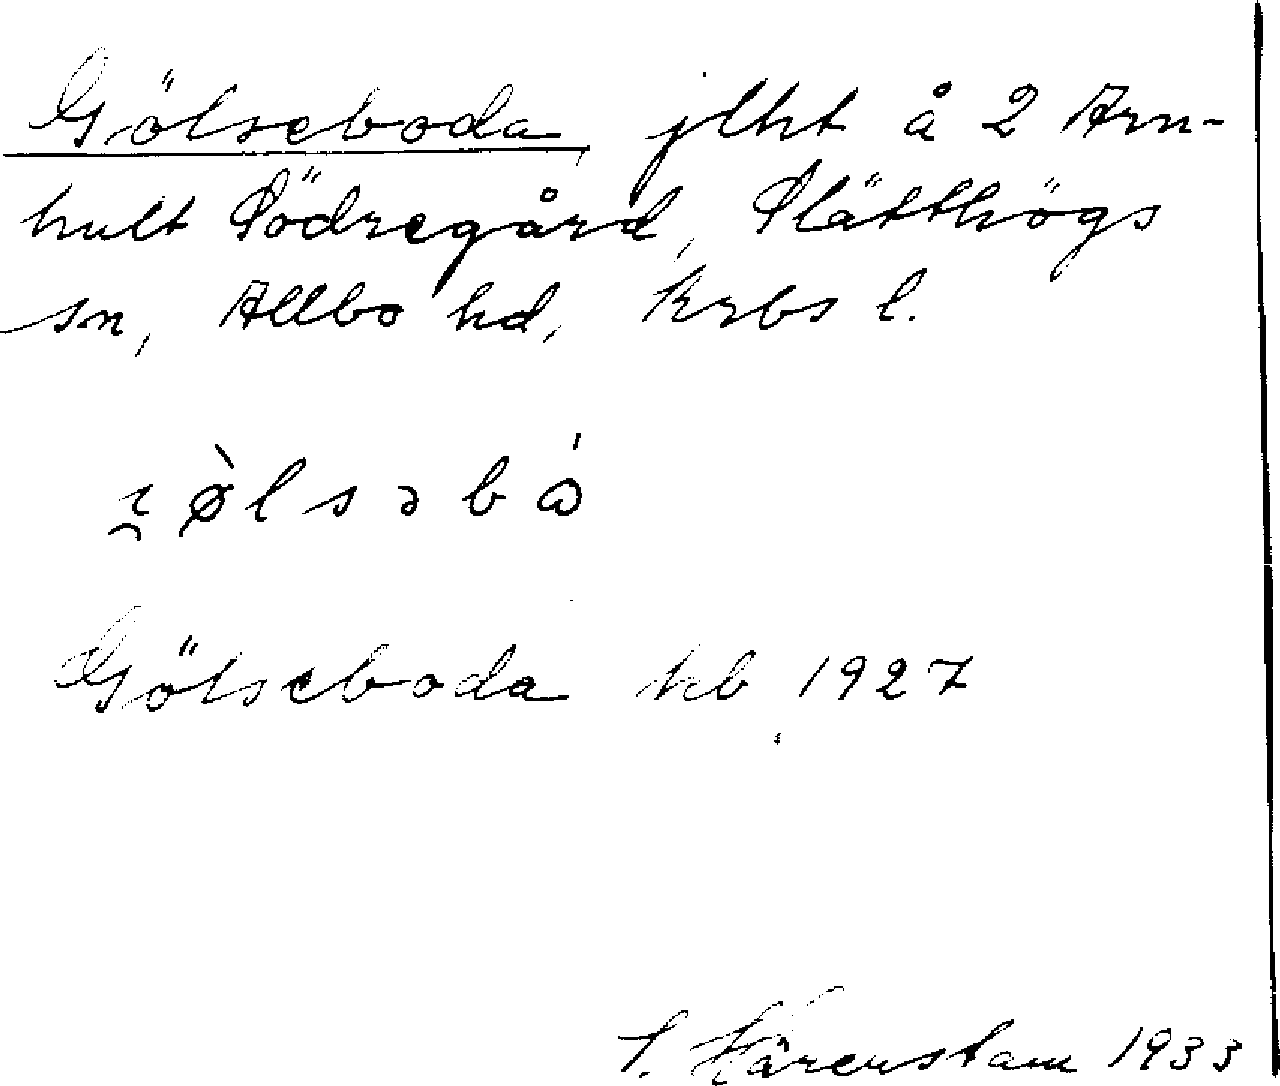 Gölseboda, jlht å 2 Arn-
hult Södregård, Slätthögs
sn, Allbo hd, Krbs l.
ølsəbó
Gölseboda kb 1927
Härenstam 1933